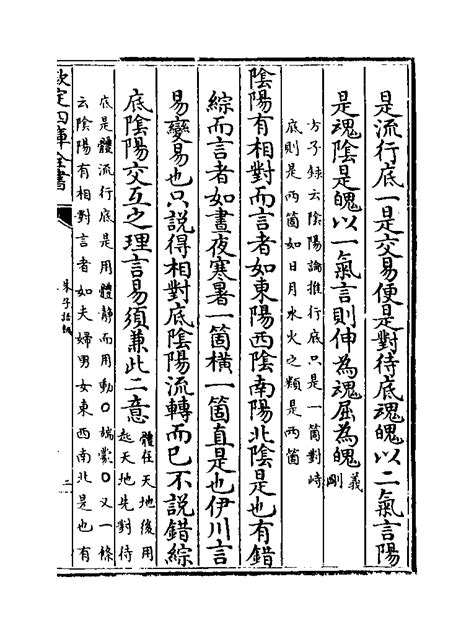 是流行底一是交易便是對待底魂魄以二氣言陽
是魂陰是魄以一氣言則伸為魂屈為魄義剛
方子錄云陰陽論推行底只是一箇對峙
底則是兩箇如日月水火之類是兩箇
陰陽有相對而言者如東陽西陰南陽北陰是也有錯
綜而言者如晝夜寒暑一箇橫一箇直是也伊川言
易變易也只說得相對底陰陽流轉而已不說錯綜
底陰陽交互之理言易須兼此二意體在天地後用
起天地先對待
底是體流行底是用體靜而用動○端蒙○又一條
云陰陽有相對言者如夫婦男女東西南北是也有
欽定四庫全書
朱子五經語類
二